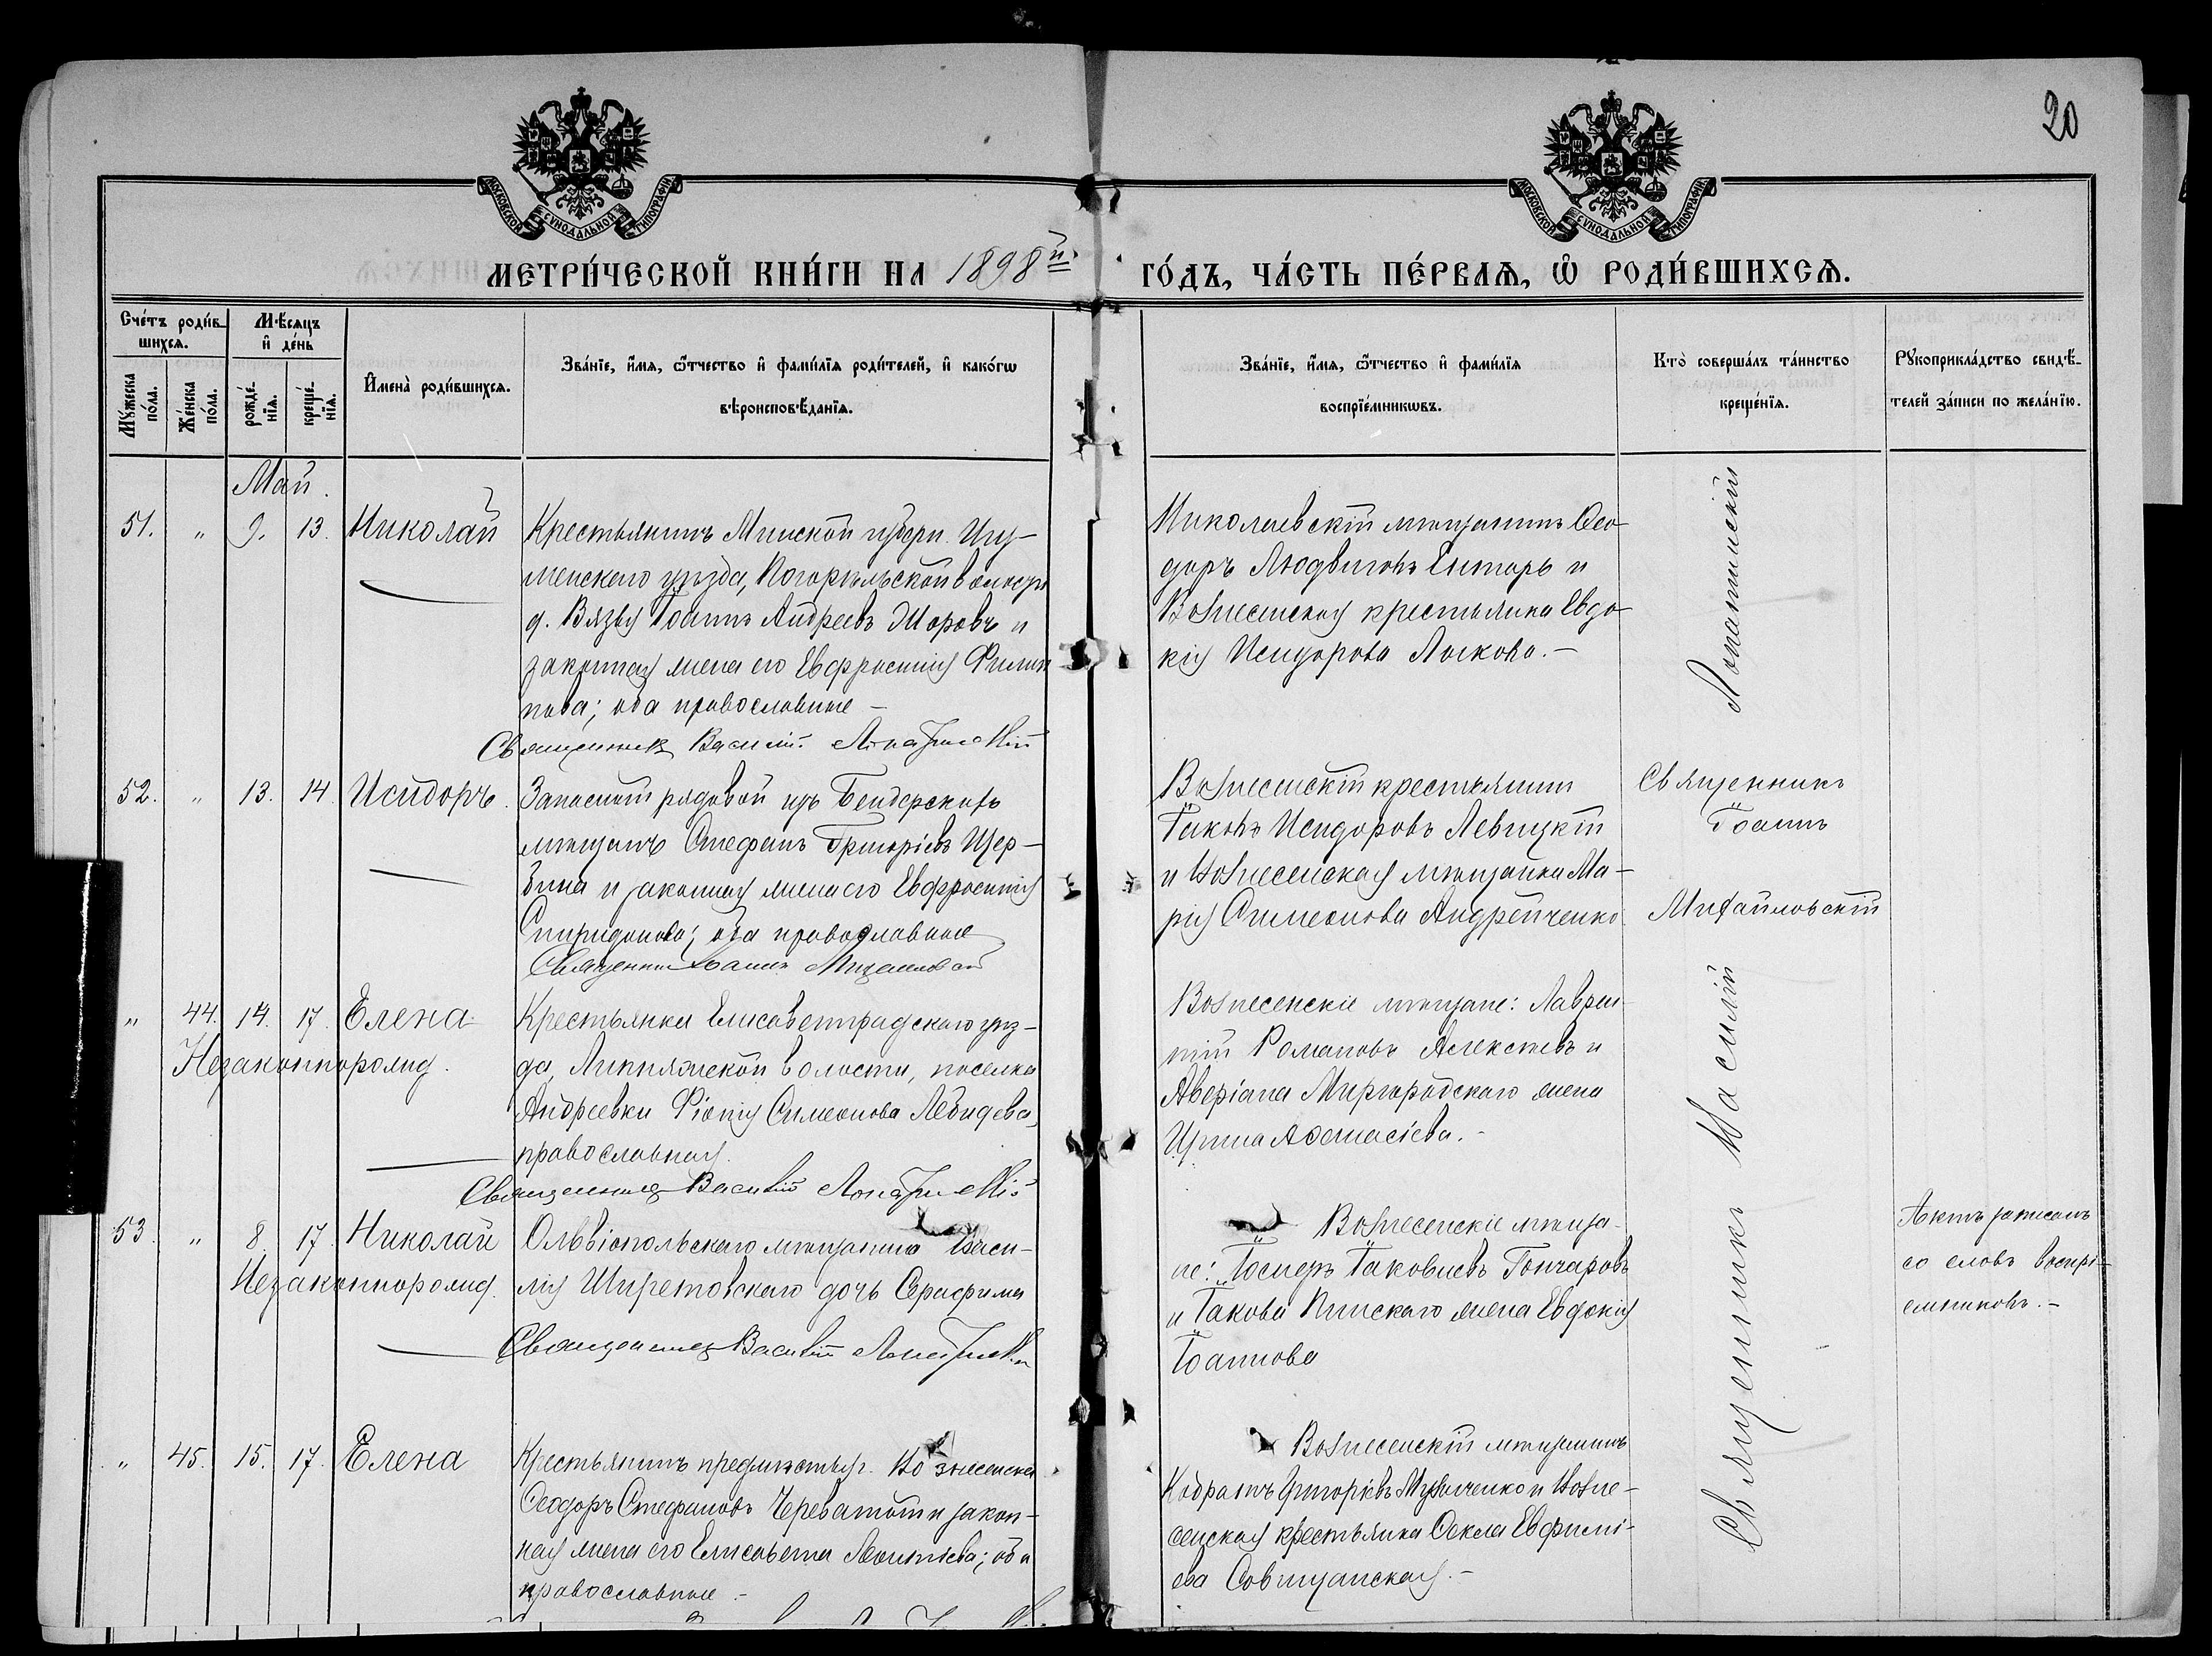 20
МОСКОВСКОЙ СѴНОДАЛЬНОЙ ТИПОГРАФІИ
МОСКОВСКОЙ СѴНОДАЛЬНОЙ ТИПОГРАФІИ
МЕТРИ́ЧЕСКОЙ КНИ́ГИ НА 1898й
ГО́ДЪ, ЧА́СТЬ ПЕ́РВАѦ, Ѡ҆ РОДИ́ВШИХСѦ.
Сче́тъ роди́в-
шихсѧ.
Мꙋ́жеска по́ла.
Же́нска по́ла.
Мѣ́сѧцъ
и҆ де́нь
рожде́-
нїѧ.
креще́-
нїѧ.
И҆мена̀ роди́вшихсѧ.
Зва́нїе, и҆́мѧ, ѻ҆́тчество и҆ фами́лїѧ роди́телей, и҆ како́гѡ
вѣроисповѣ́данїѧ.
Зва́нїе, и҆́мѧ, ѻ҆́тчество и҆ фами́лїѧ
воспрїе́мникѡвъ.
Кто̀ соверша́лъ та́инство
креще́нїѧ.
Рꙋкоприкла́дство свидѣ́-
телей за́писи по жела́нїю.
Май.
51. " 9. 13. Николай
Крестьянинъ Минской губерн. Игу-
менскаго уѣзда, Погорѣльской волости
д. Вязья Іоаннъ Андреевъ Жоровъ и
законная жена его Евфросинія Филип
пова; оба православные -
Священникъ Василій Лопатинскій
Николаевскій мѣщанинъ Ѳео-
доръ Людвиговъ и
Вознесенская крестьянка Евдо-
кія Исидорова Лыкова. -
52. " 13. 14. Исидоръ.
Запасной рядовой изъ Бендерскихъ
мѣщанъ Стефанъ Григоріевъ Щер-
бина и законная жена его Евфросинія
Спиридонова; оба православные
Священникъ Іоаннъ Михайловскій
Вознесенскій крестьянинъ
Іаковъ Исидоровъ Левицкій
и Вознесенская мѣщанка Ма-
рія Симеонова Андрейченко
Священникъ
Іоаннъ
Михайловскій
" 44. 14. 17. Елена
Незаконнорожд.
Крестьянка Елисаветградскаго уѣз-
да, Липняжской волости, поселка
Андреевки Ѳіонія Симеонова Лебидева,
православная.
Священникъ Василій Лопатинскій
Вознесенскіе мѣщане: Лаврен-
тій Романовъ Алексѣевъ и
Аверіана Миргородскаго жена
Ирина Аѳанасіева. -
53. " 8. 17. Николай
Незаконнорожд.
Ольвіопольскаго мѣщанина Васи-
лія Ширетовскаго дочь Серафима
Священникъ Василій Лопатинскій
Вознесенскіе мѣща-
не: Іосифъ Іаковлевъ Гончаровъ
и Іакова Пинскаго жена Евдокія
Іоаннова
Актъ записанъ
со словъ воспрі-
емниковъ. -
" 45. 15. 17. Елена
Крестьянинъ предмѣстья г. Вознесенска
Ѳеодоръ Стефановъ Череватый и закон-
ная жена его Елисавета Леонтіева; оба
православные. -
Вознесенскій мѣщанинъ
Кодратъ Григоріевъ Музыченко и Возне-
сенская крестьянка Ѳекла Евфимі-
ева Совпщанская. -
Священникъ Василій Лопатинскій